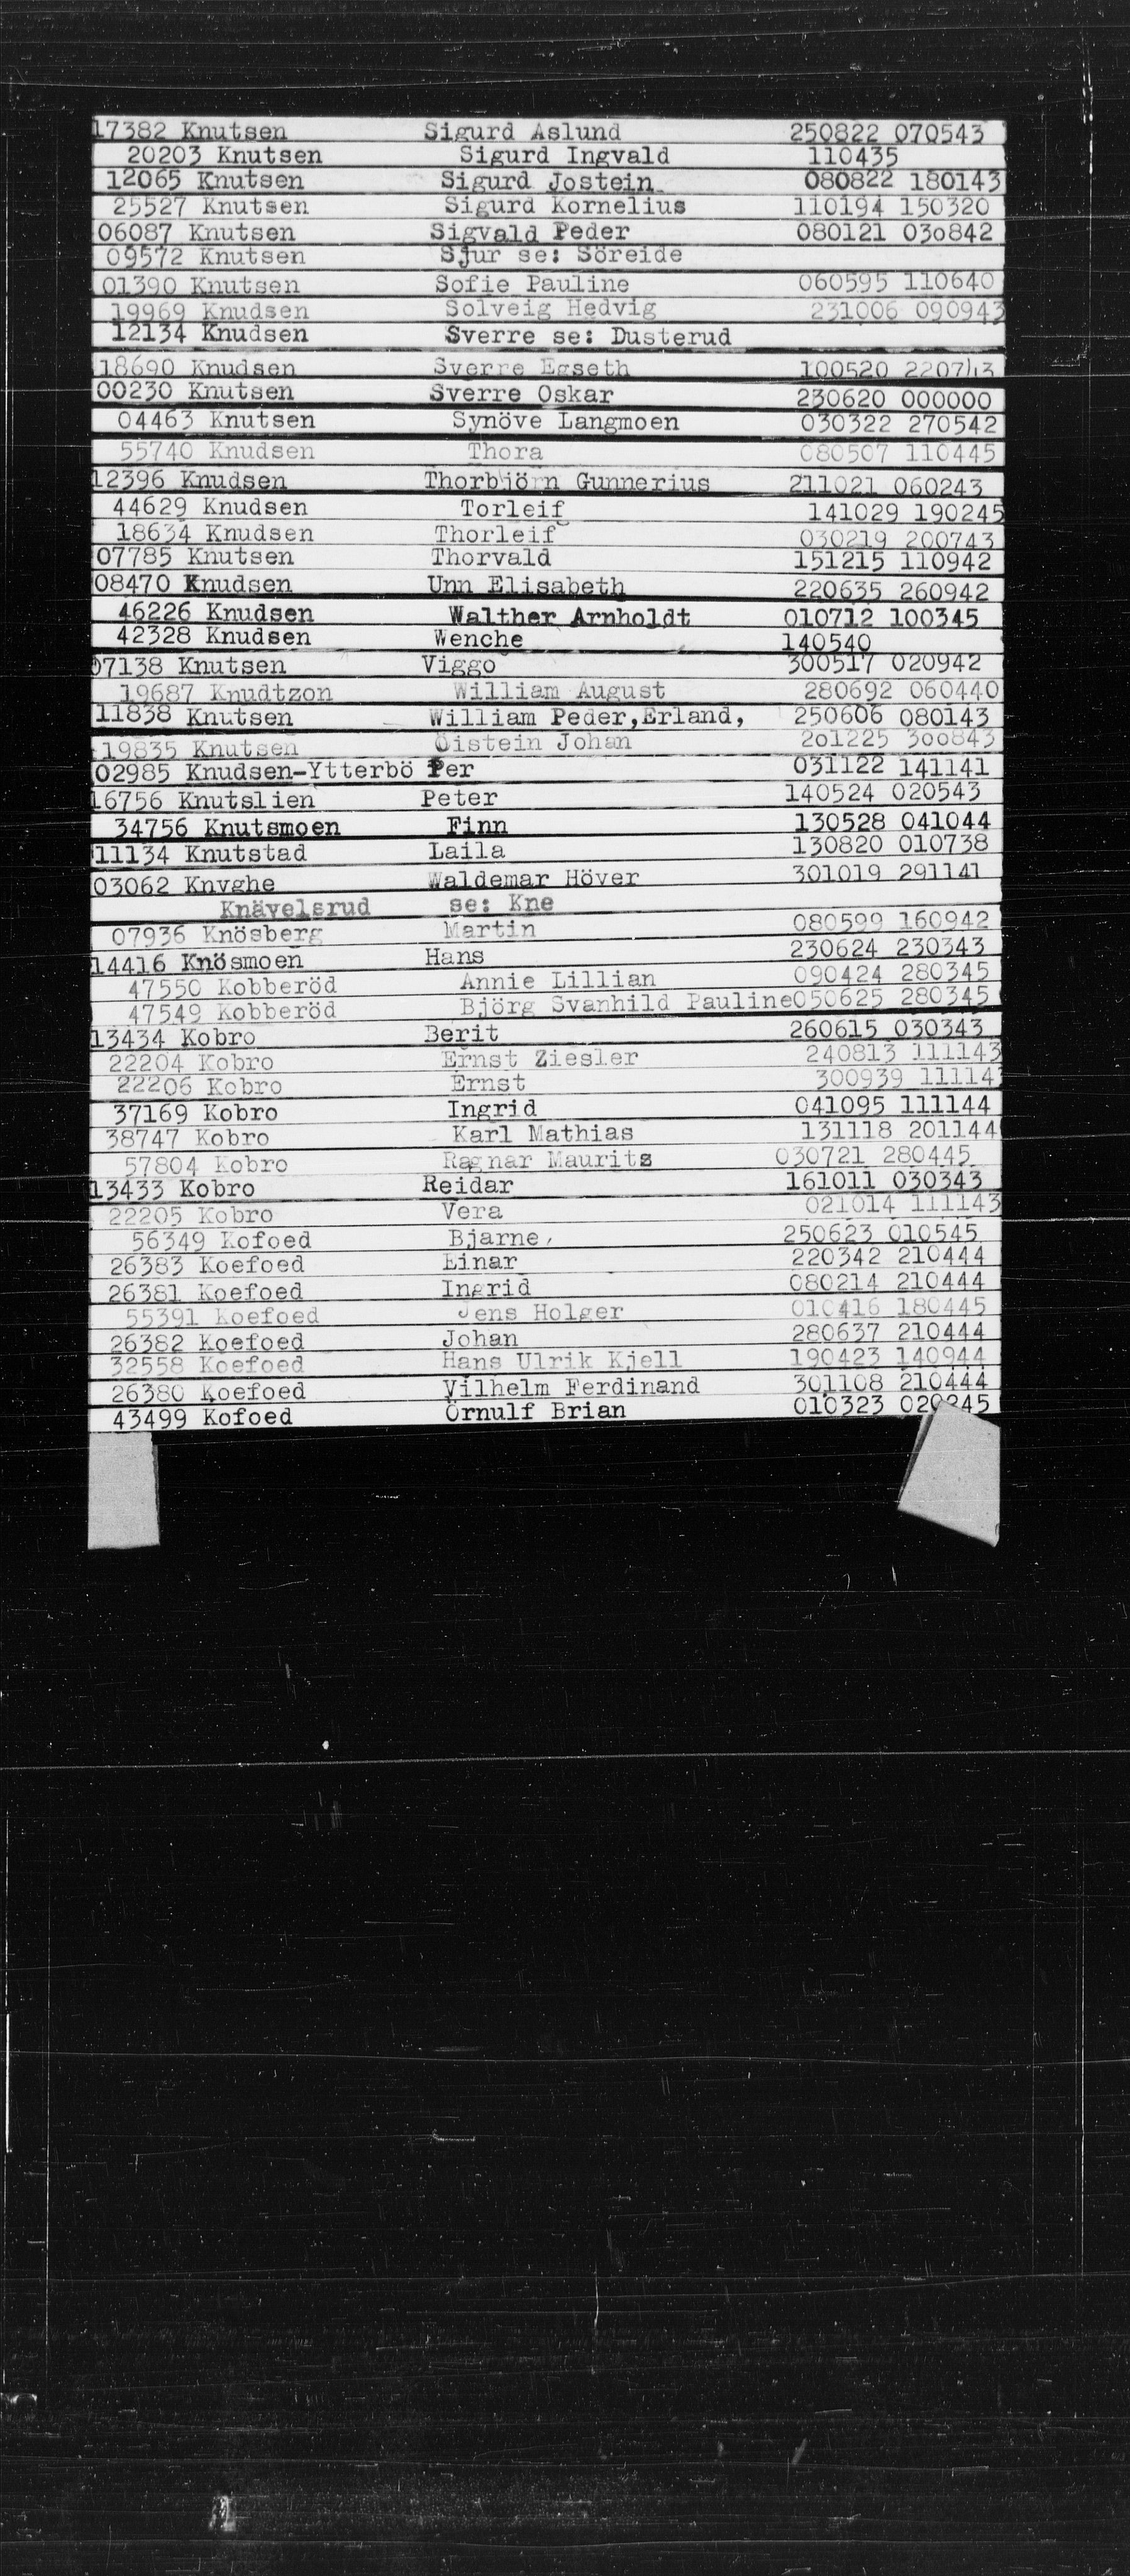 17382 Knutsen Sigurd Aslund 250822 070543
20203 Knutsen Sigurd Ingvald 110435
12065 Knutsen Sigurd Jostein 080822 180143
25527 Knutsen Sigurd Kornelius 110194 150320
06087 Knutsen Sigvald Peder 080121 030842
09572 Knutsen Sjur se: Söreide
01390 Knutsen Sofie Pauline 060595 110640
19969 Knudsen Solveig Hedvig 231006 090943
12134 Knudsen Sverre se: Dusterud
18690 Knudsen Sverre Egseth 100520 220743
00230 Knutsen Sverre Oskar 230620 000000
04463 Knutsen Synöve Langmoen 030322 270542
55740 Knudsen Thora 080507 110445
12396 Knudsen Thorbjörn Gunnerius 211021 060243
44629 Knudsen Torleif 141029 190245
18634 Knudsen Thorleif 030219 200743
07785 Knutsen Thorvald 151215 110942
08470 Knudsen Unn Elisabeth 220635 260942
46226 Knudsen Walther Arnholdt 010712 100345
42328 Knudsen Wenche 140540
07138 Knutsen Viggo 300517 020942
19687 Knudtzon William August 280692 060440
11838 Knutsen William Peder,Erland, 250606 080143
19835 Knutsen Öistein Johan 201225 300843
02985 Knudsen-Ytterbö Per 031122 141141
16756 Knutslien Peter 140524 020543
34756 Knutsmoen Finn 130528 041044
11134 Knutstad Laila 130820 010738
03062 Knyghe Waldemar Höver 301019 291141
Knävelsrud se: Kne
07936 Knösberg Martin 080599 160942
14416 Knösmoen Hans 230624 230343
47550 Kobberöd Annie Lillian 090424 280345
47549 Kobberöd Björg Svanhild Pauline 050625 280345
13434 Kobro Berit 260615 030343
22204 Kobro Ernst Ziesler 240813 111143
22206 Kobro Ernst 300939 11114
37169 Kobro Ingrid 041095 111144
38747 Kobro Karl Mathias 131118 201144
57804 Kobro Ragnar Maurits 030721 280445
13433 Kobro Reidar 161011 030343
22205 Kobro Vera 021014 111143
56349 Kofoed Bjarne, 250623 010545
26383 Koefoed Einar 220342 210444
26381 Koefoed Ingrid 080214 210444
55391 Koefoed Jens Holger 010416 180445
26382 Koefoed Johan 280637 210444
32558 Koefoed Hans Ulrik Kjell 190423 140944
26380 Koefoed Vilhelm Ferdinand 301108 210444
43499 Kofoed Örnulf Brian 010323 020245